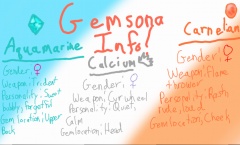 Gemsona
Info!
Aquamarine
Gender: ♀
Weapon: Trident
Personality: Sweet
bubbly, forgetful
Gem location: Upper
Back
Calcium
Gender: ♀
Weapon:
Personality: Quiet,
Calm
Gem location: Head
Carnelian
Gender: ♀
Weapon: Flame
thrower
Personality: Rash
rude, loud
Gem location: Cheek